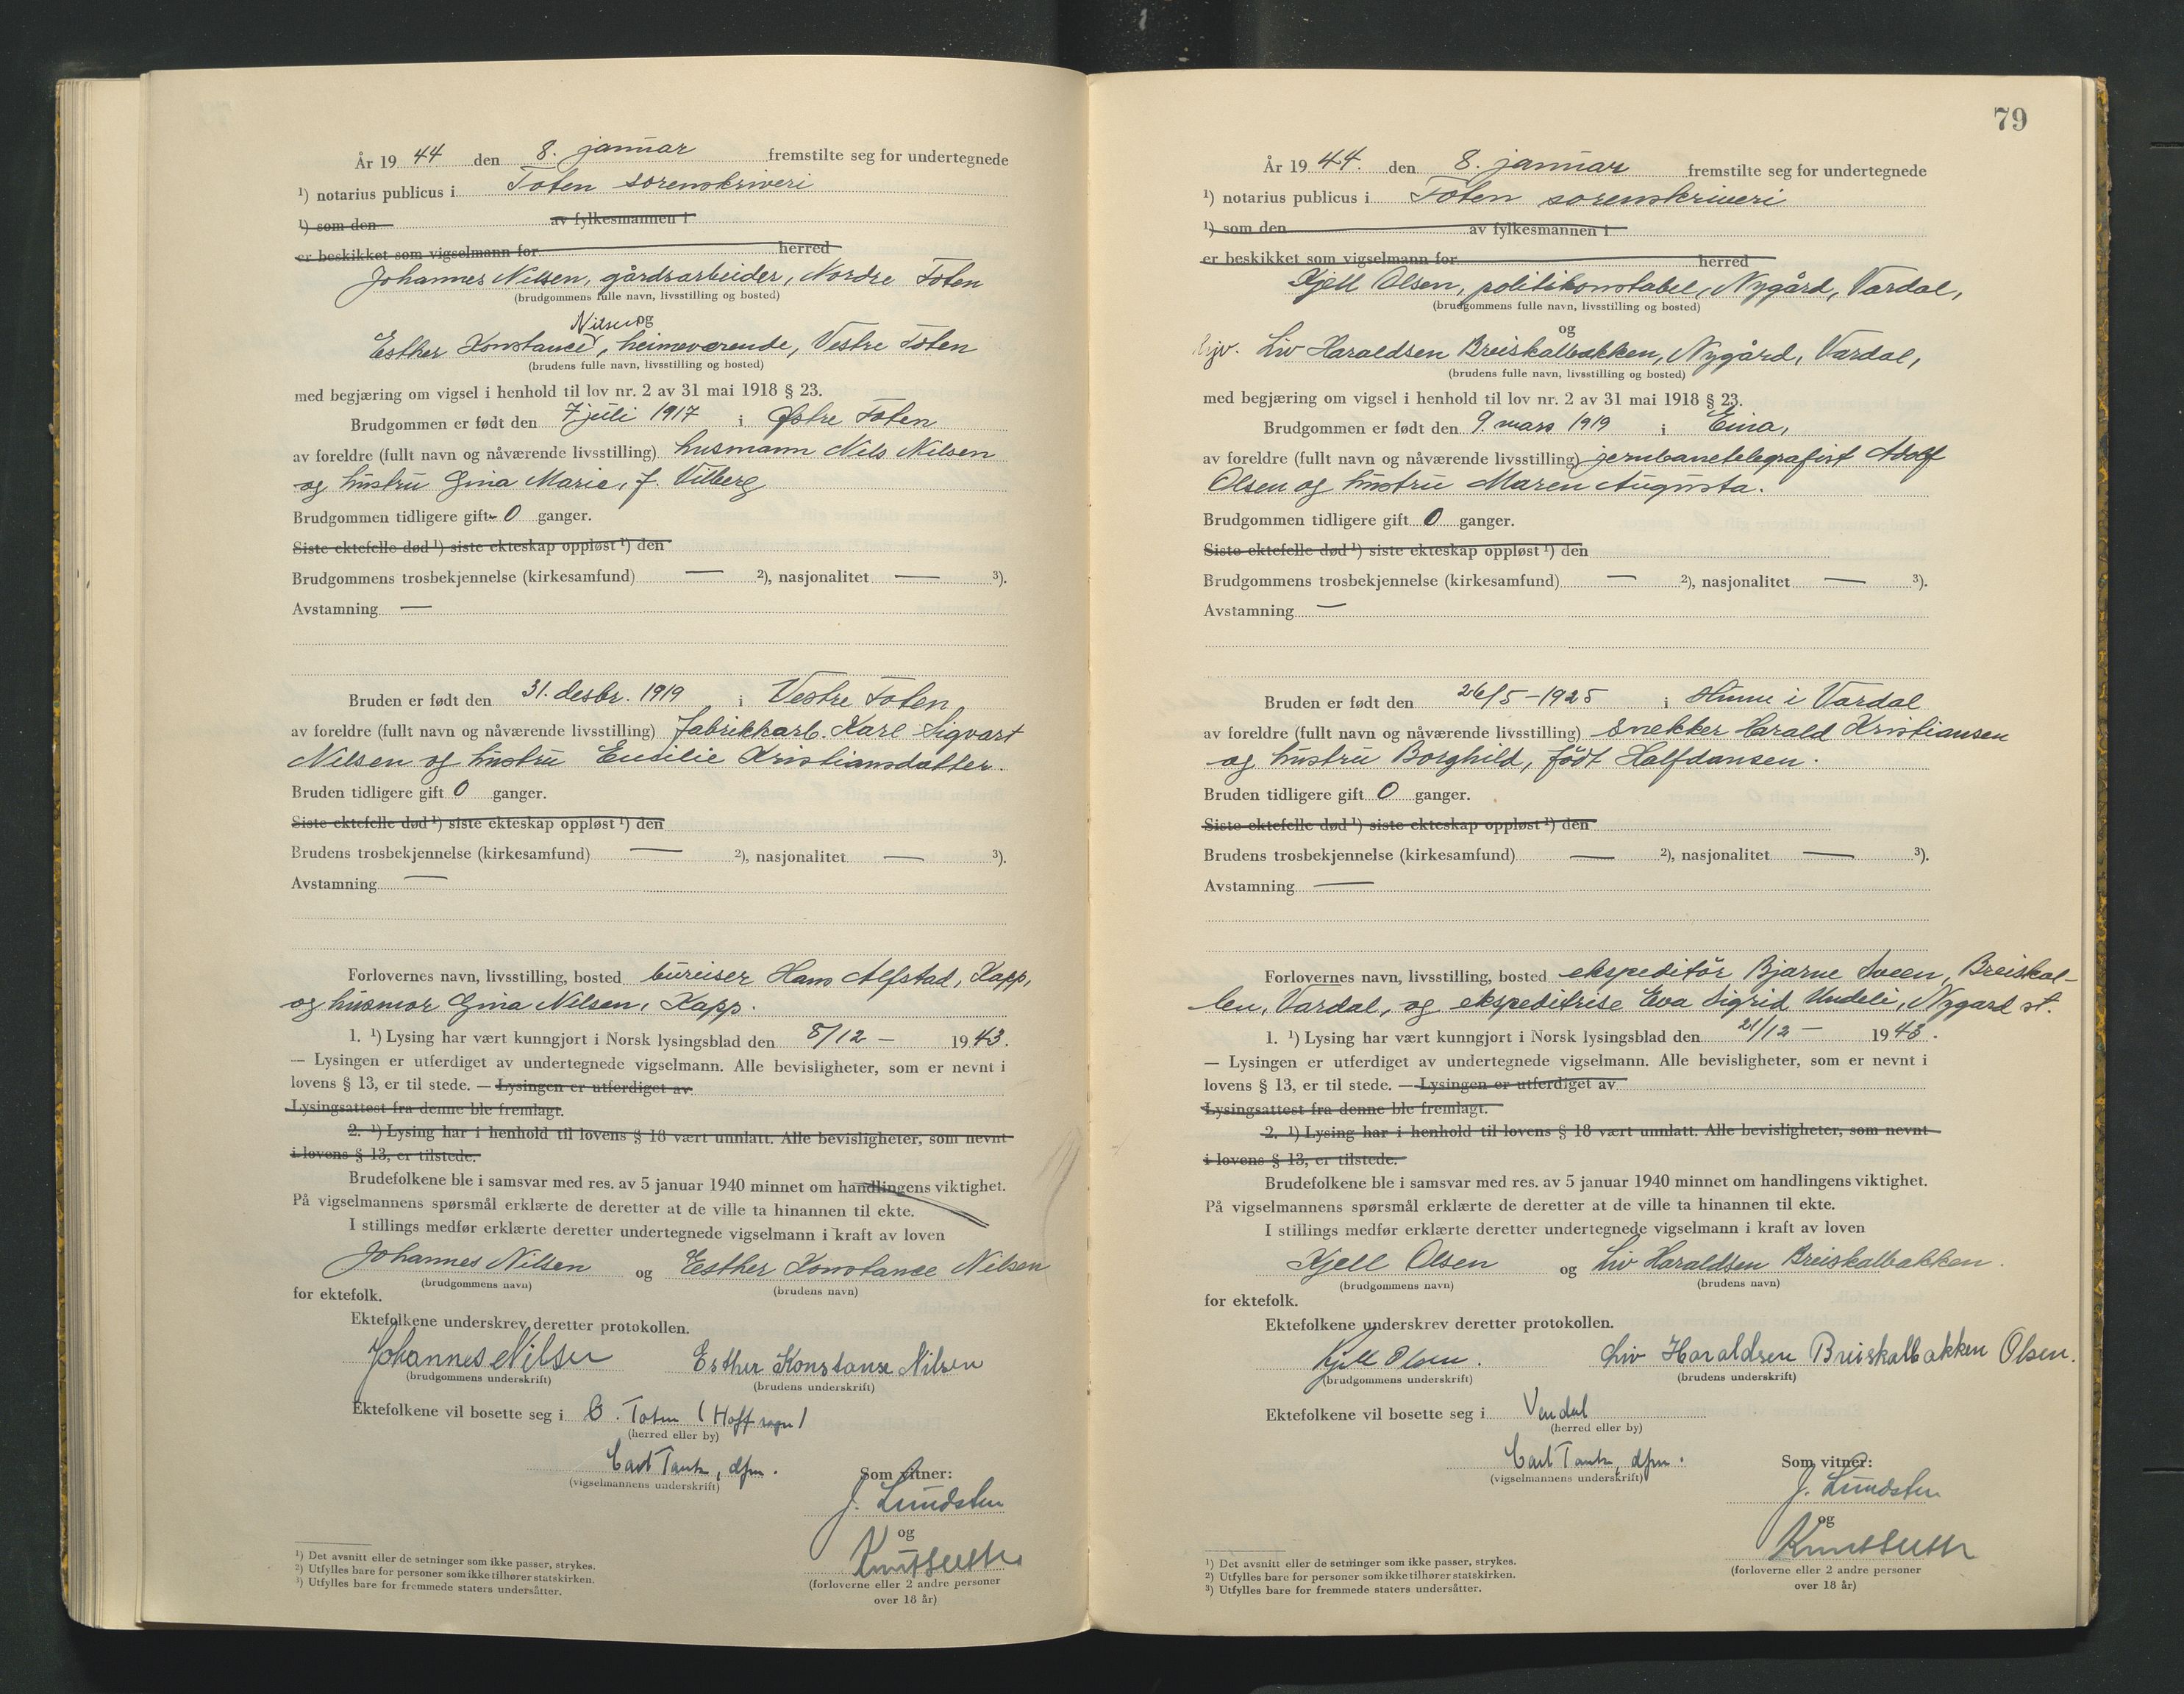 År 19 44 den 8. januar fremstilte seg for undertegnede
¹) notarius publicus i Toten sorenskriveri
¹) som den av fylkesmannen i
er beskikket som vigselmann for herred
Johannes Nilsen, gårdsarbeider, Nordre Toten
(brudgommens fulle navn, livsstilling og bosted)
Nilsen og
Esther Konstance, heimeværende, Vestre Toten
(brudens fulle navn, livsstilling og bosted)
med begjæring om vigsel i henhold til lov nr. 2 av 31 mai 1918 § 23.
Brudgommen er født den 7 juli 1917 i Østre Toten
av foreldre (fullt navn og nåværende livsstilling) husmann Nils Nilsen
og hustru Gina Marie, f. Vilberg
Brudgommen tidligere gift 0 ganger.
Siste ektefelle død ¹) siste ekteskap oppløst ¹) den
Brudgommens trosbekjennelse (kirkesamfund) — ²), nasjonalitet — ³).
Avstamning —
Bruden er født den 31. desbr. 1919 i Vestre Toten
av foreldre (fullt navn og nåværende livsstilling) fabrikkarb. Karl Sigvart
Nilsen og hustru Emilie Kristiansdatter.
Bruden tidligere gift 0 ganger.
Siste ektefelle død ¹) siste ekteskap oppløst ¹) den
Brudens trosbekjennelse (kirkesamfund) — ²), nasjonalitet — ³).
Avstamning —
Forlovernes navn, livsstilling, bosted bureiser Hans Alfstad, Kapp,
og husmor Gina Nilsen, Kapp.
1. ¹) Lysing har vært kunngjort i Norsk lysingsblad den 8/12 — 1943.
— Lysingen er utferdiget av undertegnede vigselmann. Alle bevisligheter, som er nevnt i
lovens § 13, er til stede. — Lysingen er utferdiget av
Lysingsattest fra denne ble fremlagt.
2. ¹) Lysing har i henhold til lovens § 18 vært unnlatt. Alle bevisligheter, som nevnt
i lovens § 13, er tilstede.
Brudefolkene ble i samsvar med res. av 5 januar 1940 minnet om handlingens viktighet.
På vigselmannens spørsmål erklærte de deretter at de ville ta hinannen til ekte.
I stillings medfør erklærte deretter undertegnede vigselmann i kraft av loven
Johannes Nilsen og Esther Konstance Nilsen
(brudgommens navn) (brudens navn)
for ektefolk.
Ektefolkene underskrev deretter protokollen.
Johannes Nilsen Esther Konstanse Nilsen
(brudgommens underskrift) (brudens underskrift)
Ektefolkene vil bosette seg i Ø. Toten (Hoff sogn)
(herred eller by)
Carl dfm.
(vigselmannens underskrift)
Som vitner:
J. Lundsten
og
(forloverne eller 2 andre personer
over 18 år)
¹) Det avsnitt eller de setninger som ikke passer, strykes.
²) Utfylles bare for personer som ikke tilhører statskirken.
³) Utfylles bare for fremmede staters undersåtter.
79
År 19 44. den 8. januar fremstilte seg for undertegnede
¹) notarius publicus i Toten sorenskriveri
¹) som den av fylkesmannen i
er beskikket som vigselmann for herred
Kjell Olsen, politikonstabel, Nygård, Vardal,
(brudgommens fulle navn, livsstilling og bosted)
og
Liv Haraldsen Breiskalbakken, Nygård, Vardal,
(brudens fulle navn, livsstilling og bosted)
med begjæring om vigsel i henhold til lov nr. 2 av 31 mai 1918 § 23.
Brudgommen er født den 9. mars 1919 i Eina,
av foreldre (fullt navn og nåværende livsstilling) jernbanetelegrafist Adolf
Olsen og hustru Maren Augusta.
Brudgommen tidligere gift 0 ganger.
Siste ektefelle død ¹) siste ekteskap oppløst ¹) den
Brudgommens trosbekjennelse (kirkesamfund) — ²), nasjonalitet — ³).
Avstamning —
Bruden er født den 26/5 – 1925 i Hunn i Vardal
av foreldre (fullt navn og nåværende livsstilling) Snekker Harald Kristiansen
og hustru Borghild, født Halfdansen.
Bruden tidligere gift 0 ganger.
Siste ektefelle død ¹) siste ekteskap oppløst ¹) den
Brudens trosbekjennelse (kirkesamfund) — ²), nasjonalitet — ³).
Avstamning —
Forlovernes navn, livsstilling, bosted ekspeditör Bjarne Sveen, Breiskal-
len, Vardal, og ekspeditrise Eva Sigrid Undeli, Nygard st.
1. ¹) Lysing har vært kunngjort i Norsk lysingsblad den 21/12 — 1943.
— Lysingen er utferdiget av undertegnede vigselmann. Alle bevisligheter, som er nevnt i
lovens § 13, er til stede. — Lysingen er utferdiget av
Lysingsattest fra denne ble fremlagt.
2. ¹) Lysing har i henhold til lovens § 18 vært unnlatt. Alle bevisligheter, som nevnt
i lovens § 13, er tilstede.
Brudefolkene ble i samsvar med res. av 5 januar 1940 minnet om handlingens viktighet.
På vigselmannens spørsmål erklærte de deretter at de ville ta hinannen til ekte.
I stillings medfør erklærte deretter undertegnede vigselmann i kraft av loven
Kjell Olsen og Liv Haraldsen Breiskalbakken.
(brudgommens navn) (brudens navn)
for ektefolk.
Ektefolkene underskrev deretter protokollen.
Kjell Olsen. Liv Haraldsen Breiskalbakken Olsen.
(brudgommens underskrift) (brudens underskrift)
Ektefolkene vil bosette seg i Vardal
(herred eller by)
Carl dfm.
(vigselmannens underskrift)
Som vitner:
J. Lundsten
og
(forloverne eller 2 andre personer
over 18 år)
¹) Det avsnitt eller de setninger som ikke passer, strykes.
²) Utfylles bare for personer som ikke tilhører statskirken.
³) Utfylles bare for fremmede staters undersåtter.